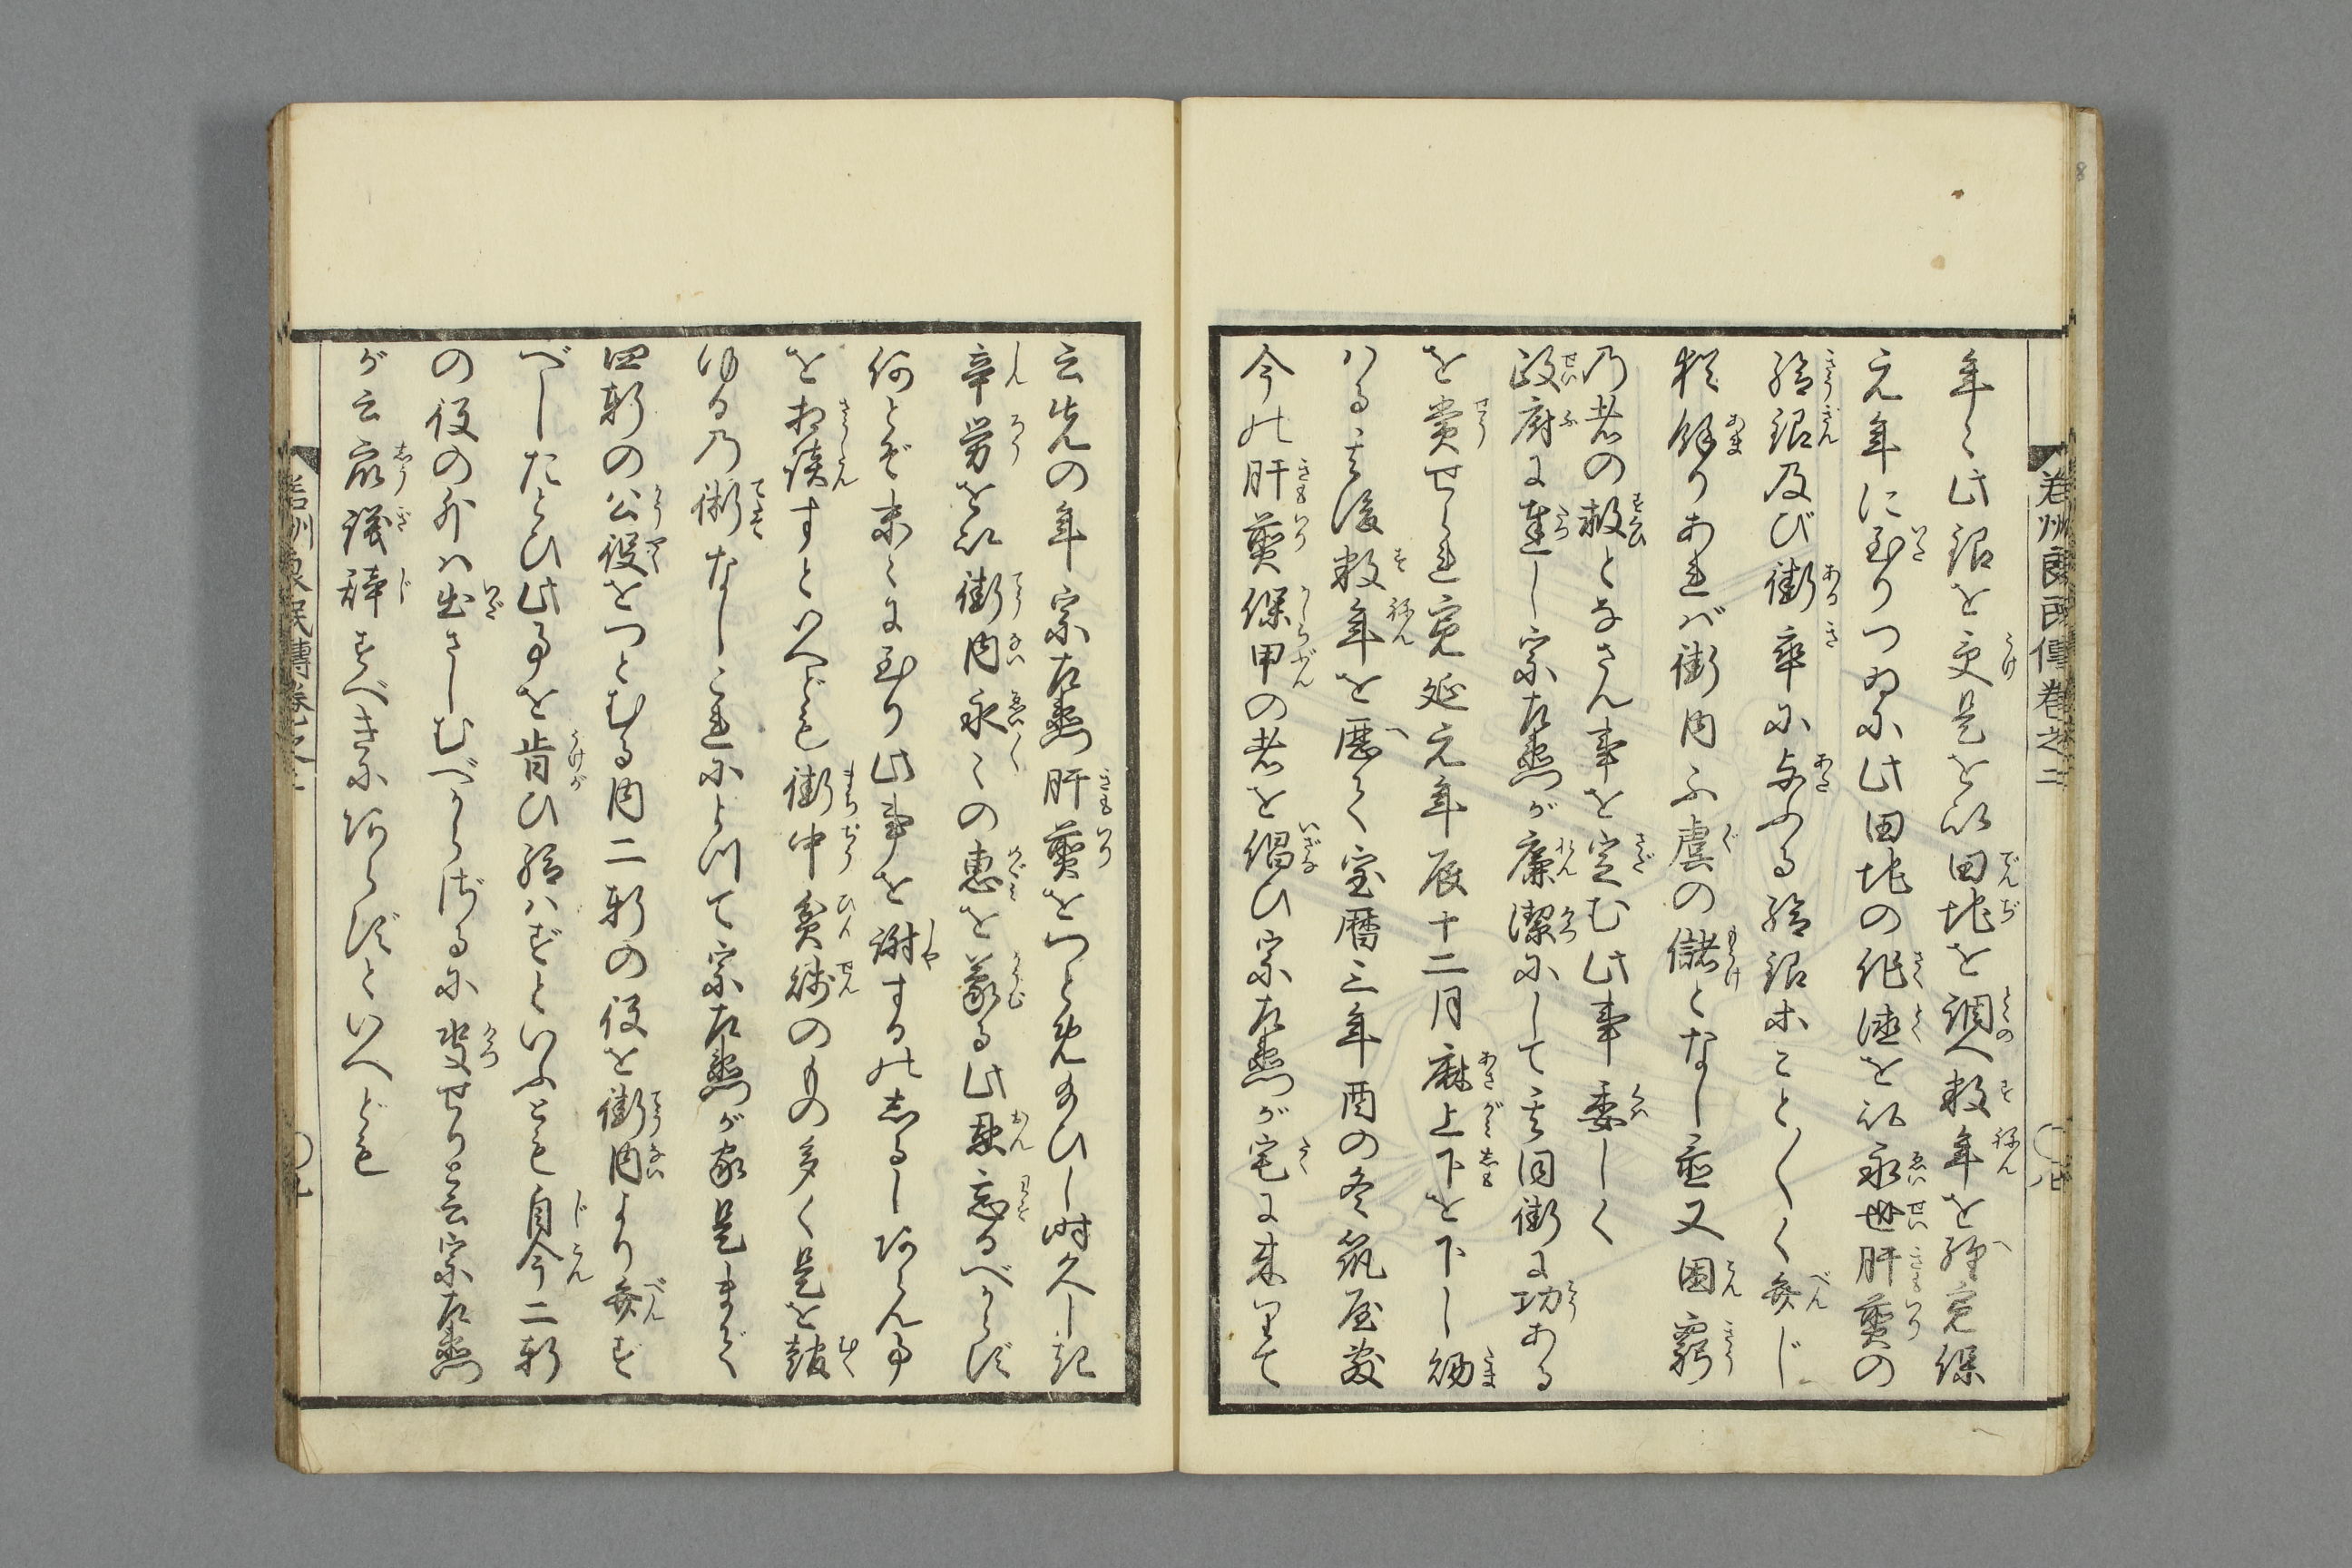 若州良民傳巻之二
年〻此銀を受是を以田地を調へ数年を経寛保
元年に至りつゐに此田地の作徳を以永世肝煎の
給銀及び街卒に与ふる給銀ホこと〴〵く弁じ
猶餘りあれバ街内不虞の儲となし並又困窮
乃者の救となさん事を定む此事委しく
政府に達し宗左衛門が廉潔にして其同街に功ある
を賞せられ寛延元年辰十二月麻上下を下し給
ハる其後数年を歴て宝暦三年酉の冬筑屋
今の肝煎保甲の者を倡ひ宗左衛門が宅に来りて
云先の年宗左衛門肝煎をつとめ給ひし時久しき
辛労を以街内永〻の恵を蒙る此恩忘るべからず
何とぞ末〻に至り此事を謝するのしるしあらん事
を相談すといへども街中貧賤のもの多く是を報
ゆる乃術なしこれによつて宗左衛門が家是まで
四軒の公役をつとむる内二軒の役を街内より弁ず
べしたとひ此事を肯ひ給ハずといふとも自今二軒
の役の外ハ出さしむべからざるに決せりと云宗左衛門
が云衆議辞すべきにあらずといへども
若州良民傳巻之二